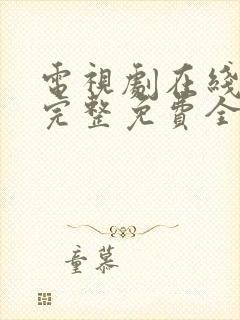 電視劇在綫
完整免費全
童慕